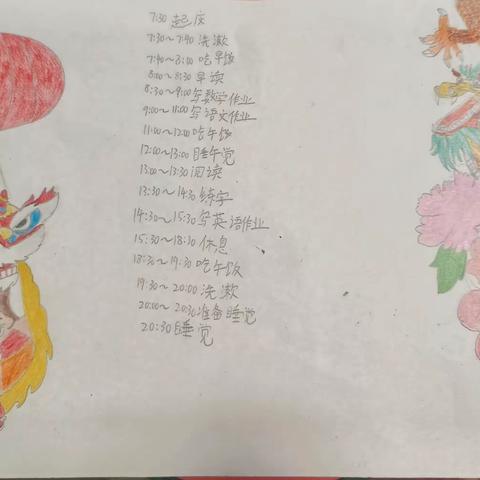 7:30 起床
7:30~7:40 洗漱
7:40~8:00 吃早饭
8:00~8:30 早读
8:30~9:00 写数学作业
9:00~11:00 写语文作业
11:00~12:00 吃午饭
12:00~13:00 睡午觉
13:00~13:30 阅读
13:30~14:30 练字
14:30~15:30 写英语作业
15:30~18:30 休息
18:30~19:30 吃午饭
19:30~20:00 洗漱
20:00~20:30 准备睡觉
20:30 睡觉